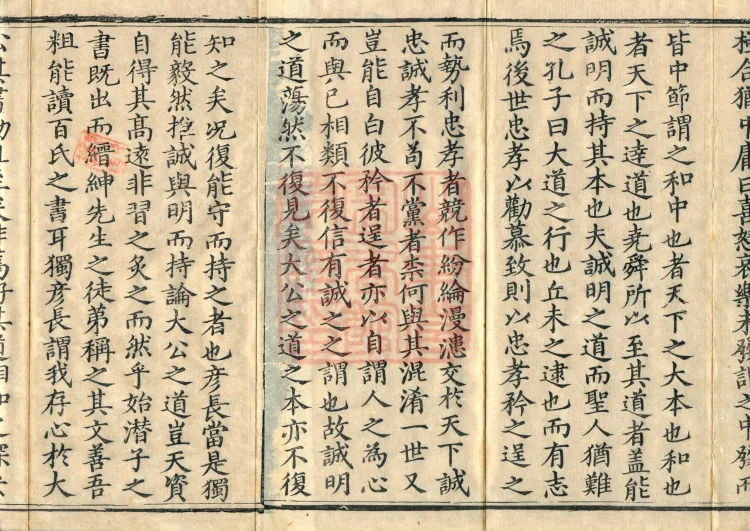 極今猶中庸曰喜怒哀樂未發謂之中發而
皆中節謂之和中也者天下之大本也和也
者天下之達道也堯舜所以至其道者盖能
誠明而持其本也夫誠明之道而聖人猶難
之孔子曰大道之行也丘未之逮也而有志
焉後世忠孝以勸慕致則以忠孝矜之逞之
而勢利忠孝者競作紛綸漫漶交於天下誠
忠誠孝不苟不黨者柰何與其混淆一世又
豈能自白彼矜者逞者亦以自謂人之為心
而與已相類不復信有誠之之謂也故誠明
之道蕩然不復見矣大公之道之本亦不復
知之矣況復能守而持之者也彦長當是獨
能毅然推誠與明而持論大公之道豈天資
自得其髙遠非習之炙之而然乎始潛子之
書既出而縉紳先生之徒弟稱之其文善吾
粗能讀百氏之書耳獨彦長謂我存心於大
公其書勸且至矣非篤好其道相知之深